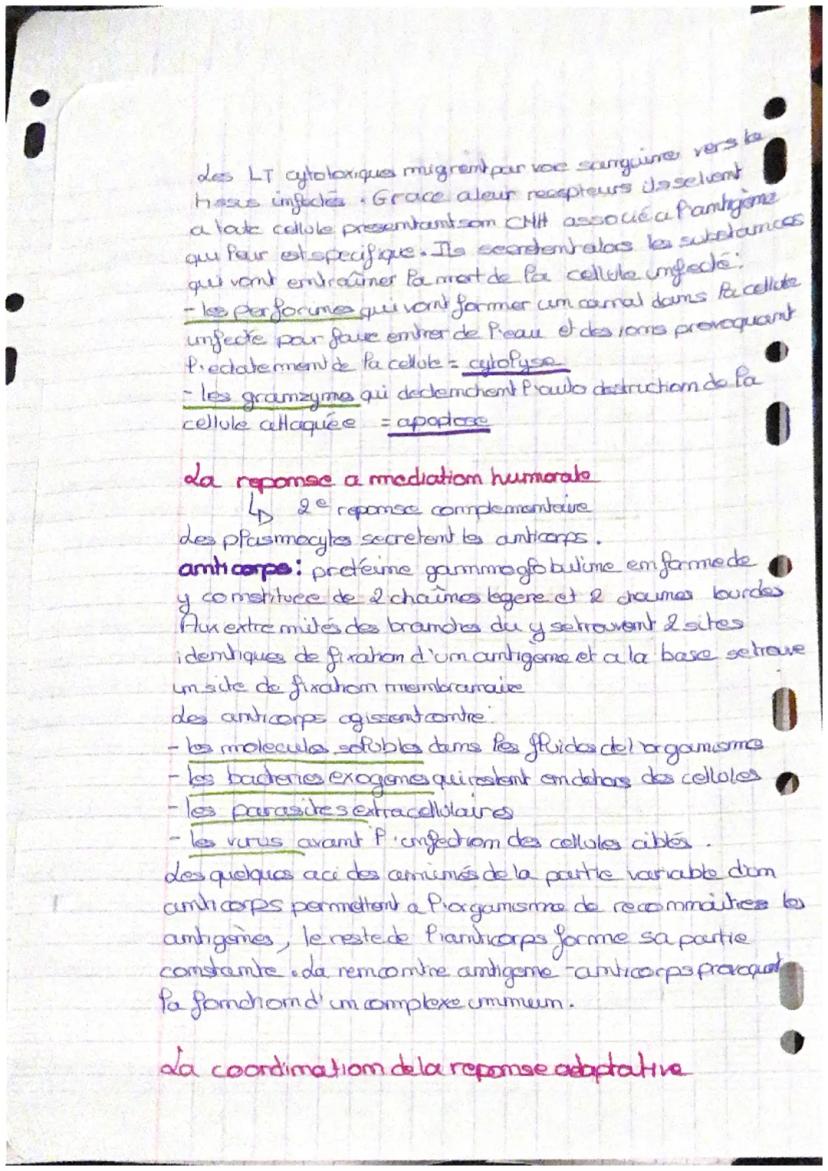 Les LT cytotoxiques migrent par voie sanguine vers le
tissus infectés. Grace a leur recepteurs ils se livent
a toute cellule presentant son CMH associé a l'antigène
qui leur est specifique. Ils secretent alors les substances
qui vont entraîner la mort de la cellule infecté:
- les perforines qui vont former un canal dans la cellule
infecte pour faire entrer de l'eau et des ions provoquant
l'eclatement de la cellule = cytolyse
- les granzymes qui declenchent l'auto destruction de la
cellule attaquée = apoptose
La reponse a mediation humorale
↳ 2e reponse complementaire
Les plasmocytes secretent les anticorps.
anticorps: proteine gammaglobuline en forme de
y constituee de 2 chaînes legere et 2 chaines lourdes
Aux extremités des branches du y se trouvent 2 sites
identiques de fixation d'un antigene et a la base se trouve
un site de fixation membranaire
Les anticorps agissent contre:
- les molecules solubles dans les fluides de l'organisme
- les bacteries exogenes qui restent en dehors des cellules
- les parasites extracellulaires
- les virus avant l'infection des cellules ciblés.
Les quelques acides aminés de la partie variable d'un
anticorps permettent a l'organisme de reconnaitres les
antigènes, le reste de l'anticorps forme sa partie
constante. La rencontre antigene-anticorps provoquent
la formation d'un complexe immun.
La coordination de la reponse adaptative